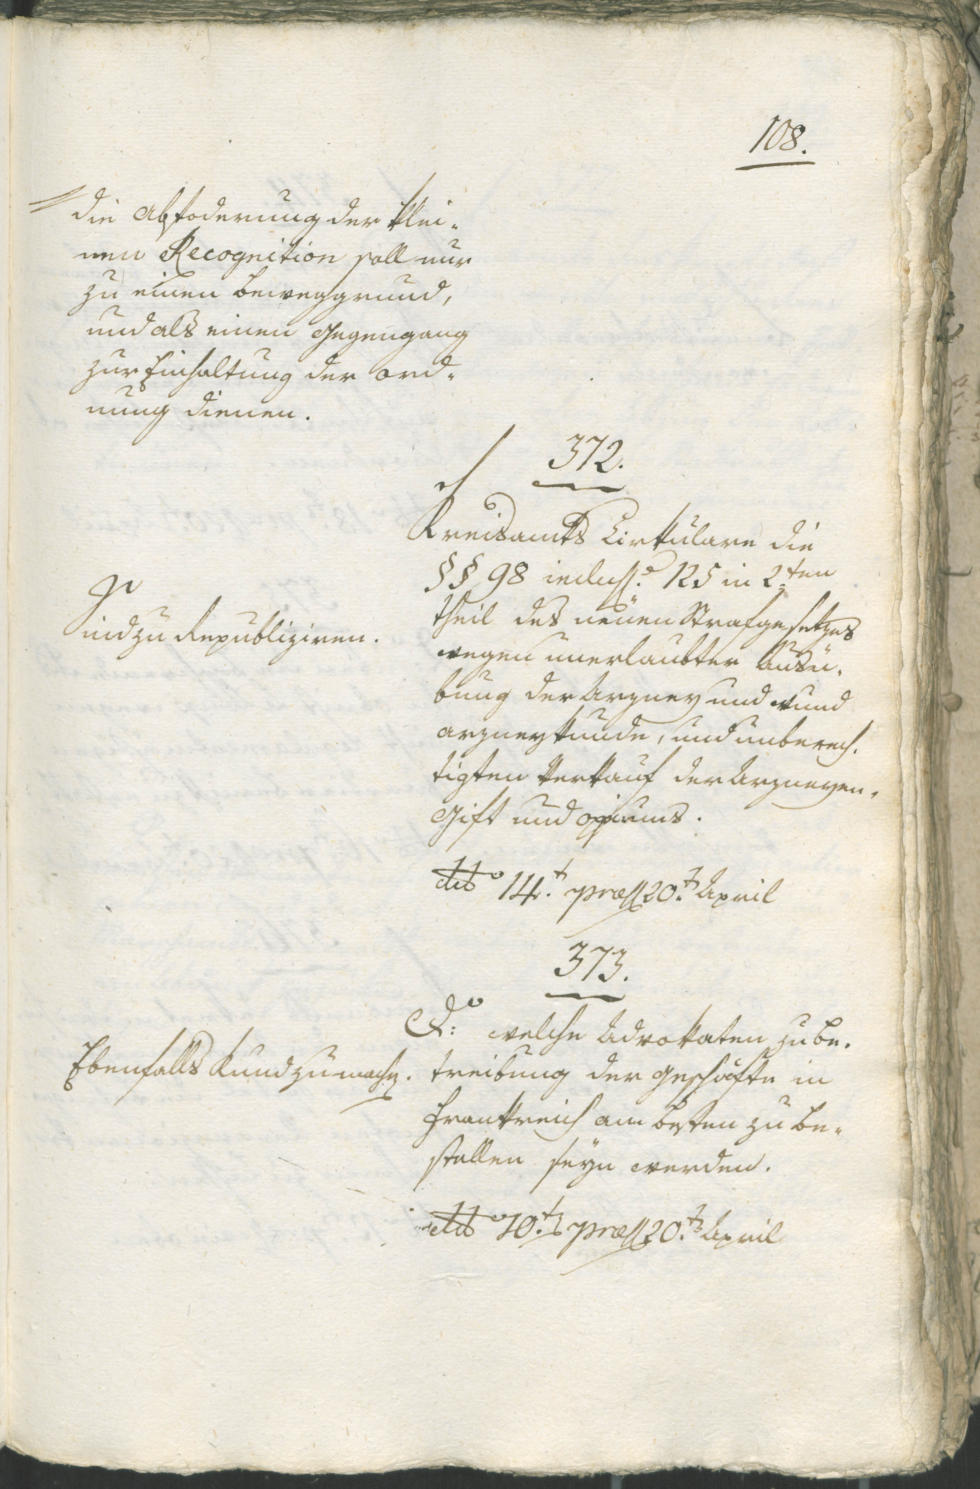 108.
die Abfoderung der klei-
nen Recognition soll nur
zu einen beweggrund,
und als einen Gegengang
zur Einhaltung der ord-
nung dienen.
372.
Kreisamts Cirkulare die
§§ 98 inclus. 125 in 2ten
theil des neüen Strafgesetzes
wegen unerlaubter Ausü-
bung der Arzney und wund
arzneykunde, und unberech-
tigten Verkauf der Arzneyen,
Gift und opiums.
Sind zu Republiziren.
dto 14t. præs 20t April
373.
do: welche Advokaten zu be-
treibung der geschäfte in
Frankreich am besten zu be-
stellen seyn werden.
Ebenfalls Kundzumach.
dto 10t præs 20t April